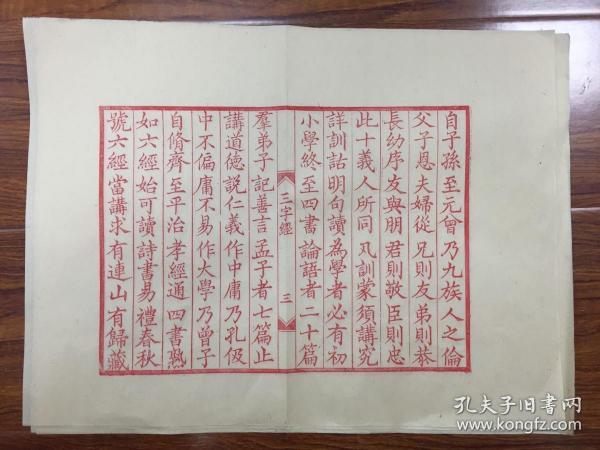 自子孫至元曾乃九族人之倫
父子恩夫婦從兄則友弟則恭
長幼序友與朋君則敬臣則忠
此十義人所同凡訓蒙須講究
詳訓詁明句讀為學者必有初
小學終至四書論語者二十篇
三字經
三
羣弟子記善言孟子者七篇止
講道德說仁義作中庸乃孔伋
中不偏庸不易作大學乃曾子
自脩齊至平治孝經通四書熟
如六經始可讀詩書易禮春秋
號六經當講求有連山有歸藏
孔夫子旧书网
kongfz.com